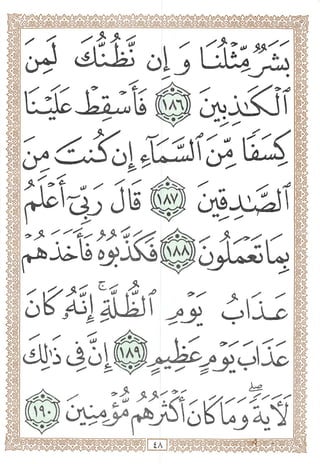 بَشَرٌ مِّثْلُنَا وَإِن نَّظُنُّكَ لَمِنَ
ٱلْكَـٰذِبِينَ ١٨٦ فَأَسْقِطْ عَلَيْنَا
كِسَفًا مِّنَ ٱلسَّمَآءِ إِن كُنتَ مِنَ
ٱلصَّـٰدِقِينَ ١٨٧ قَالَ رَبِّىٓ أَعْلَمُ
بِمَا تَعْمَلُونَ ١٨٨ فَكَذَّبُوهُ فَأَخَذَهُمْ
عَذَابُ يَوْمِ ٱلظُّلَّةِ ۚ إِنَّهُۥ كَانَ
عَذَابَ يَوْمٍ عَظِيمٍ ١٨٩ إِنَّ فِى ذَٰلِكَ
لَـَٔايَةً ۖ وَمَا كَانَ أَكْثَرُهُم مُّؤْمِنِينَ ١٩٠
٤٨